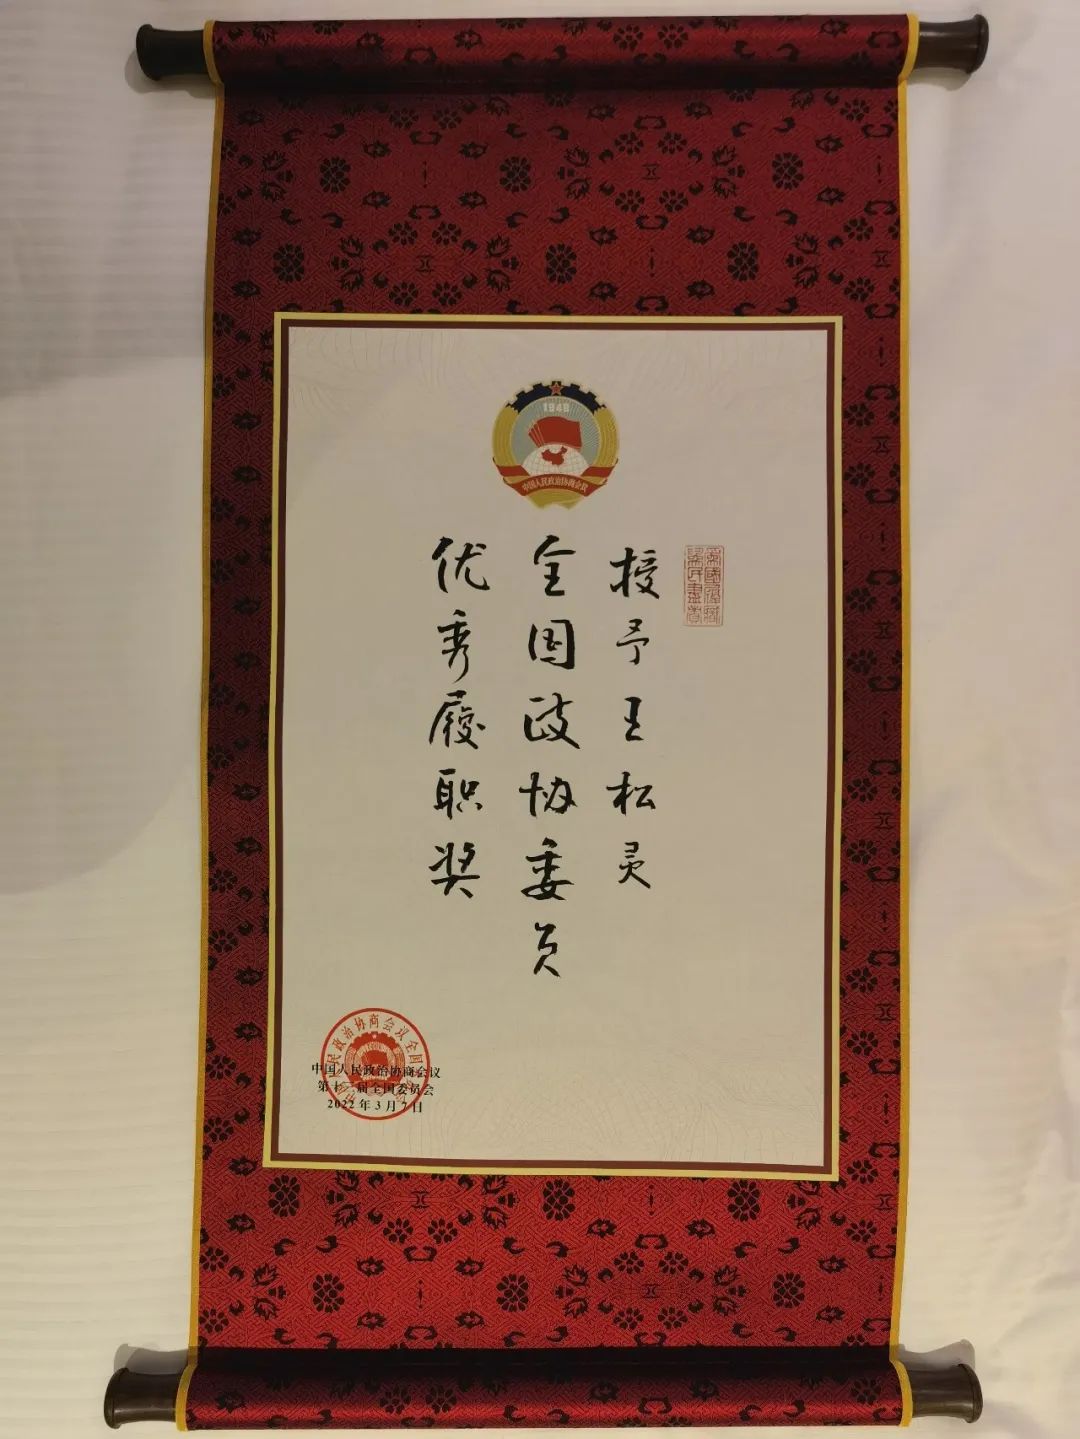 1949
中国人民政治协商会议
授予王松灵
全国政协委员
优秀履职奖
为国履职
为民尽责
中国人民政治协商会议
第十三届全国委员会
2022年3月7日